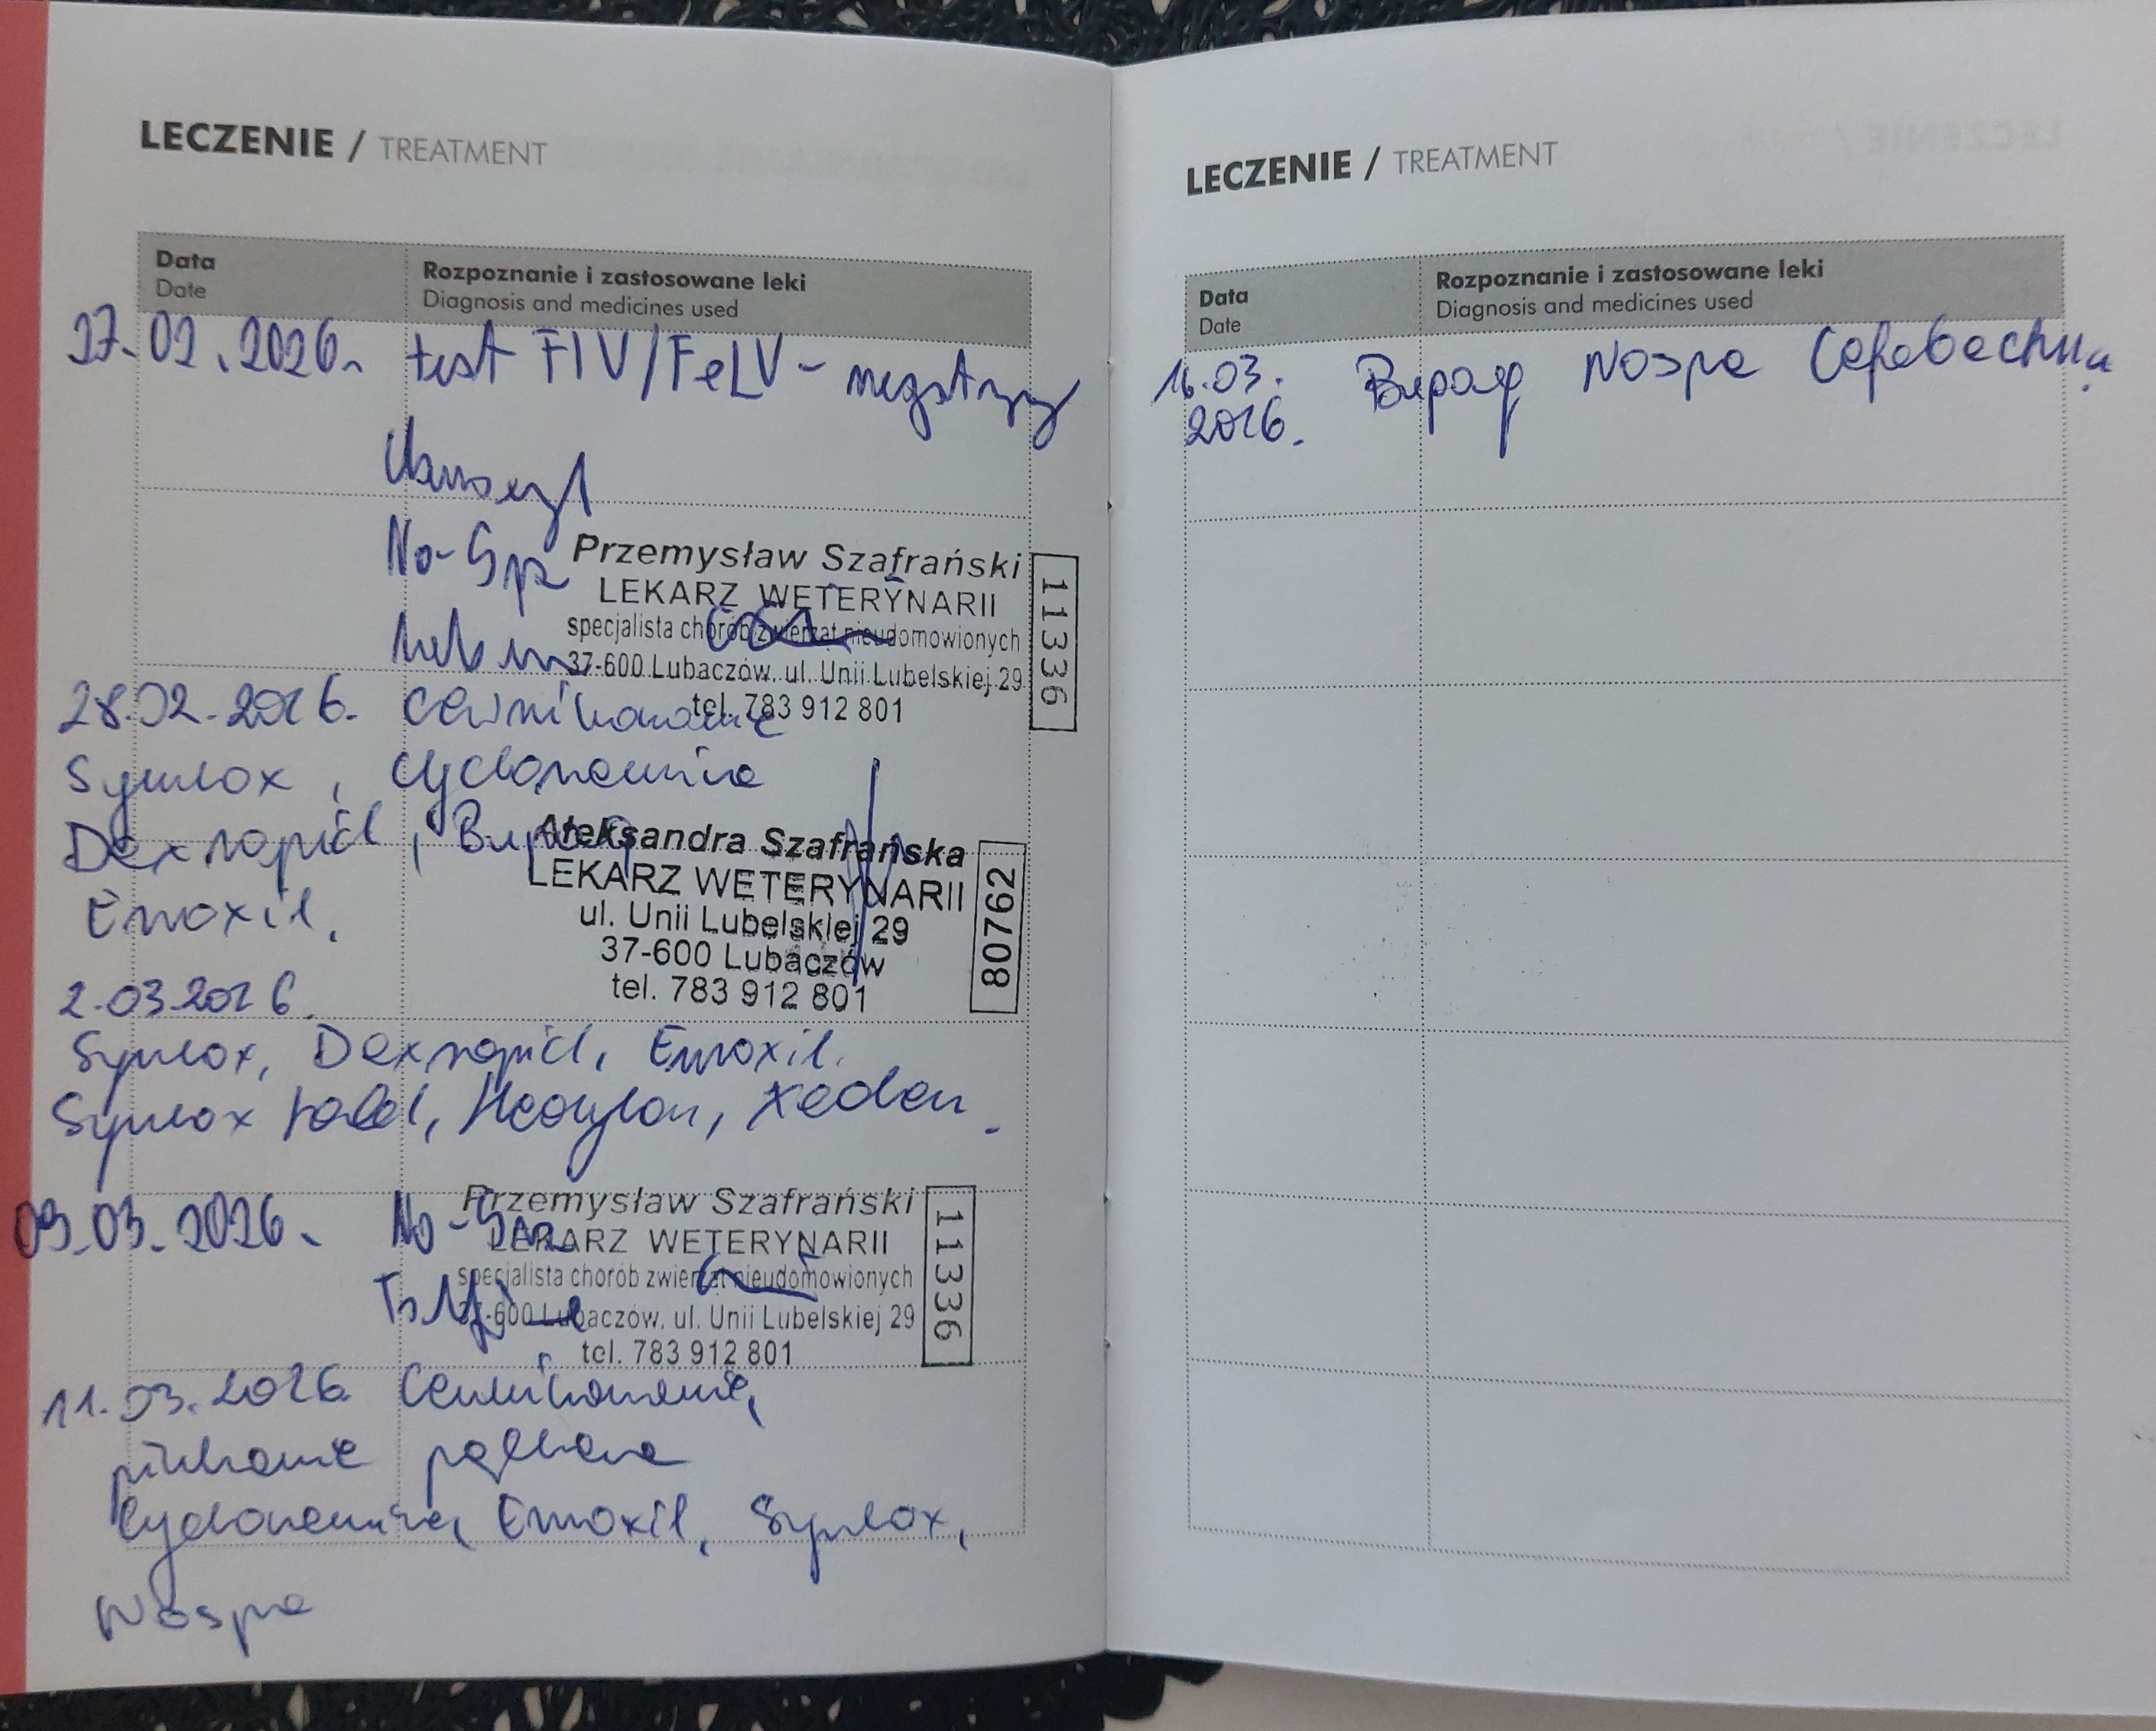 LECZENIE / TREATMENT
Data
Date
Rozpoznanie i zastosowane leki
Diagnosis and medicines used
27.02.2026. test FIV/FeLV - negatywny
No-Spa
Przemysław Szafrański
LEKARZ WETERYNARII
specjalista chorób zwierząt nieudomowionych
37-600 Lubaczów, ul. Unii Lubelskiej 29
tel. 783 912 801
11336
28.02.2026. cewnikowanie
Synulox, cyclonamina
Dexrapid, Bupaq
Enroxil.
Aleksandra Szafrańska
LEKARZ WETERYNARII
ul. Unii Lubelskiej 29
37-600 Lubaczów
tel. 783 912 801
80762
2.03.2026.
Synulox, Dexrapid, Enroxil.
Synulox tabl, Xeden.
09.03.2026. No-Spa
Przemysław Szafrański
LEKARZ WETERYNARII
specjalista chorób zwierząt nieudomowionych
37-600 Lubaczów, ul. Unii Lubelskiej 29
tel. 783 912 801
11336
11.03.2026 Cewnikowanie,
płukanie pęcherza
Cyclonamina, Enroxil, Synulox,
Nospa
LECZENIE / TREATMENT
Data
Date
Rozpoznanie i zastosowane leki
Diagnosis and medicines used
16.03. Bupaq Nospa
2026.